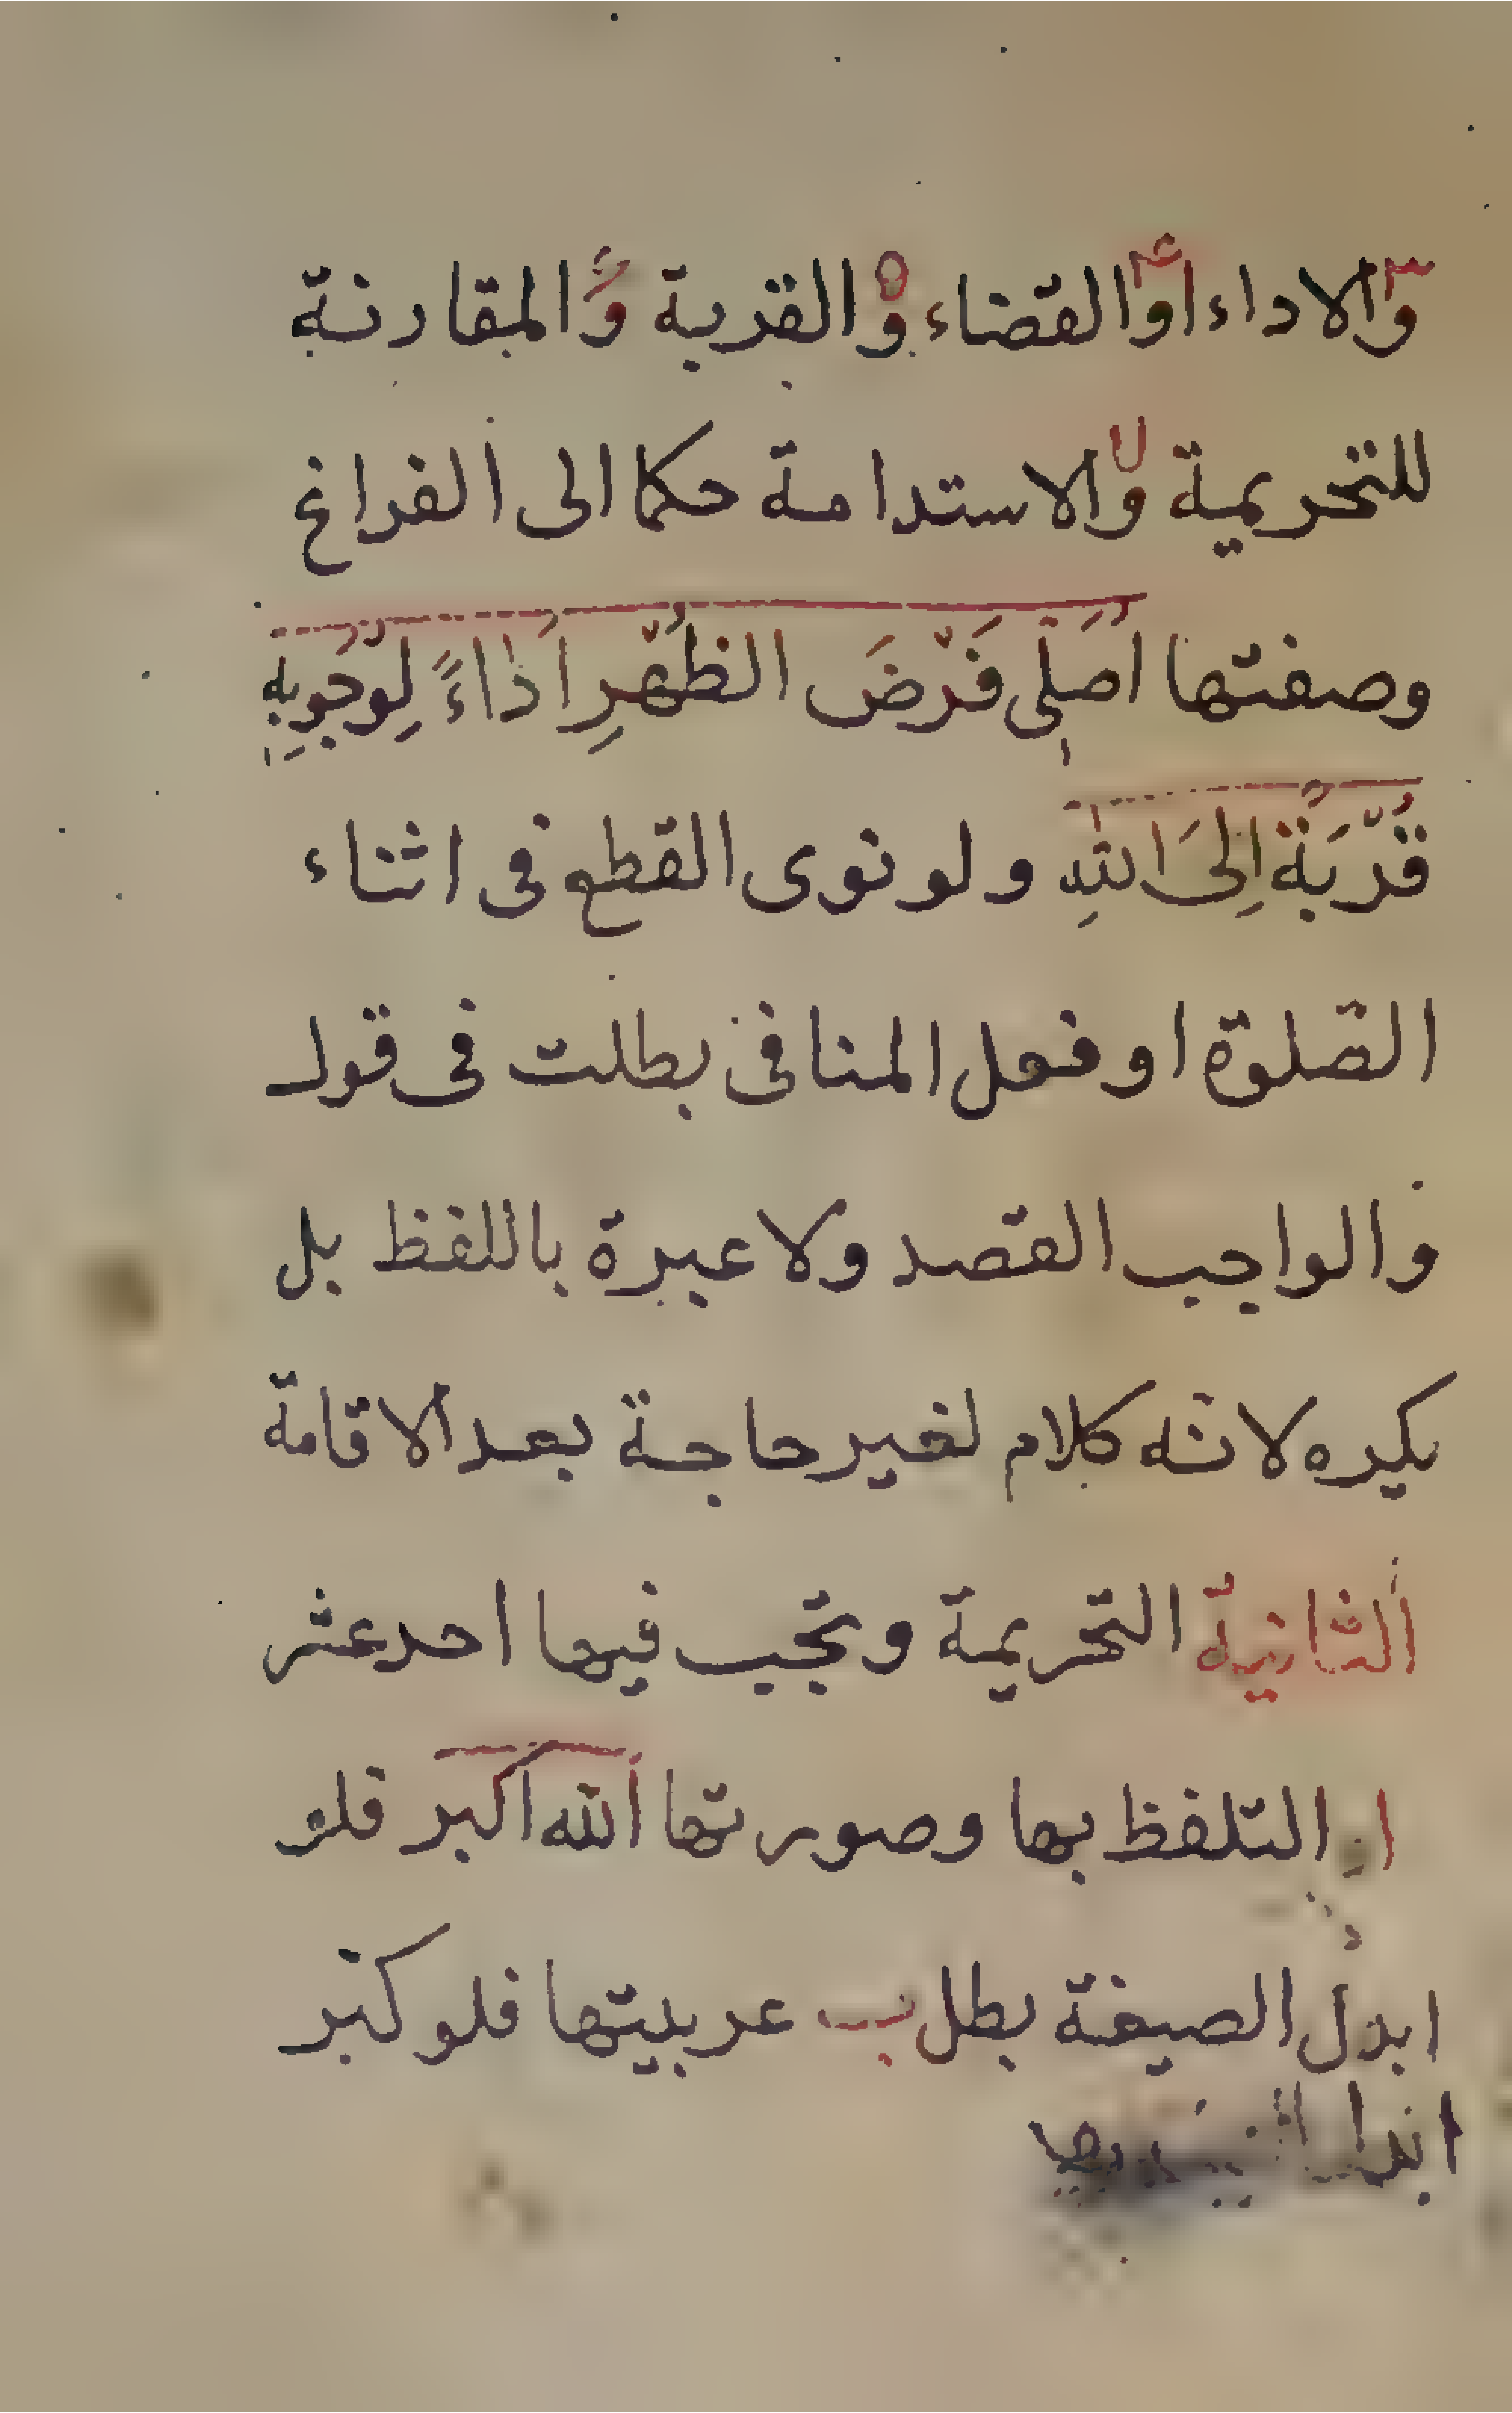 والاداء او القضاء والقربة والمقارنة
للتحريمة والاستدامة حكما الى الفراغ
وصفتها اُصَلّى فَرْضَ الظُهْرِ اَدٰاءً لِوُجُوبِهِ
قُرْبَةً اِلىَ اللهِ ولو نوى القطع فى اثناء
الصّلوة او فعل المنافى بطلت فى قول
والواجب القصد ولا عبرة باللفظ بل
يكره لانه كلام لغير حاجة بعد الاقامة
الثانية التحريمة وتجب فيها احد عشر
ا التلفظ بها وصورتها الله اكبر فلو
ابدل الصيغة بطل ب عربيتها فلو كبّر